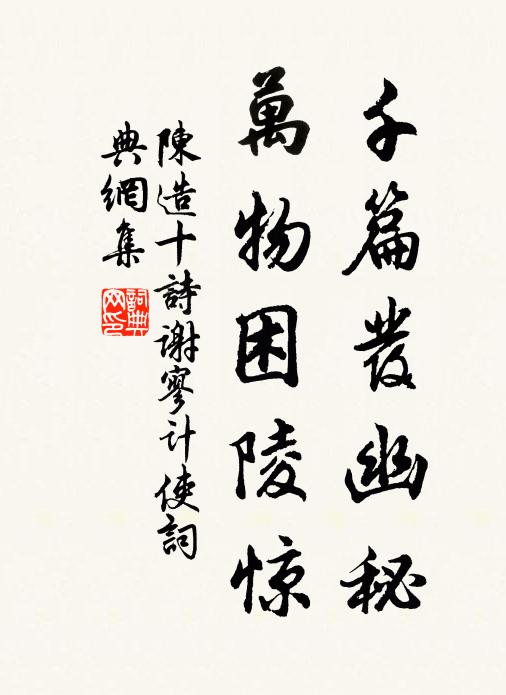 千篇發幽秘
萬物困陵惊
陳造十詩謝寥计使詞
典網集
詞典网印